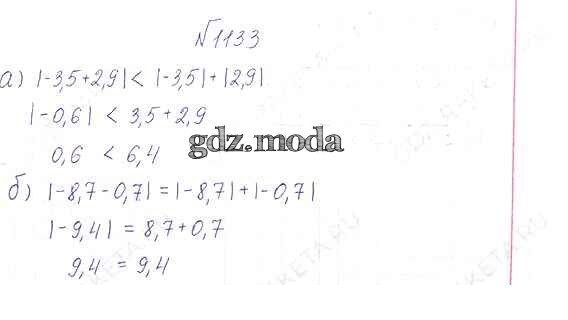 №1133
а) |-3,5+2,9| < |-3,5|+|2,9|
|-0,6| < 3,5+2,9
gdz.moda
0,6 < 6,4
б) |-8,7-0,7| = |-8,7|+|-0,7|
|-9,4| = 8,7+0,7
9,4 = 9,4